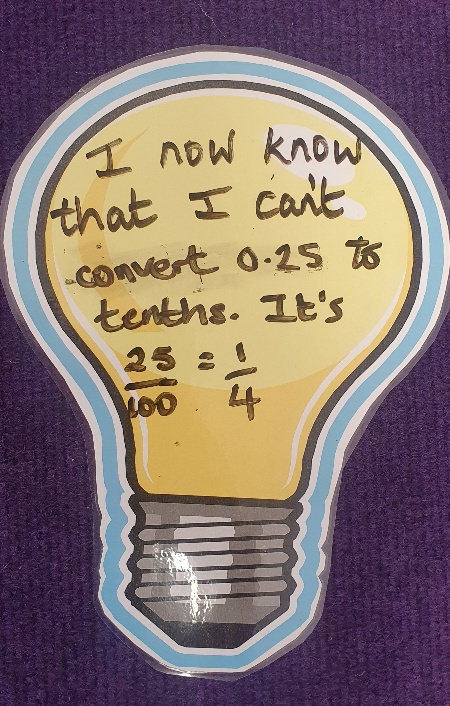 I now know
that I can't
convert 0.25 to
tenths. It's
25/100 = 1/4